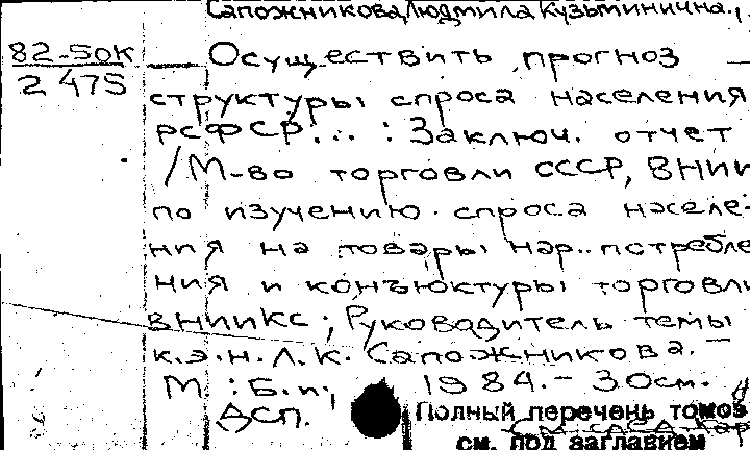 Сапожникова, Людмила Кузьминична.,
82-5ОК
2 475
— Осуществить прогноз —
структуры спроса населения
РСФСР... : Заключ. отчет
/М-во торговли СССР, ВНИИ
по изучению спроса населе-
ния на товары нар.. потребле
ния и конъюктуры торговли
ВНИИКС; Руководитель темы
к.э.н. Л.К. Сапожникова. —
М : Б.и., 1984. – 30см.
ДСП.
Полный перечень томов
см. под заглавием